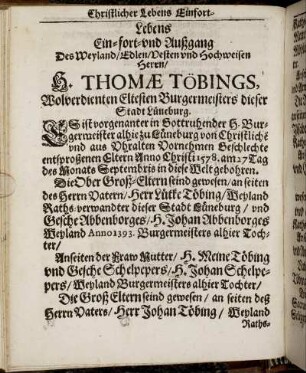 Christlicher Lebens Einfort-
Lebens
Ein-fort-vnd Außgang
Des Weyland/Edlen/Vesten vnd Hochweisen
Herrn/
H. THOMÆ TÖBINGS,
Wolverdienten Eltesten Burgermeisters dieser
Stadt Lüneburg.
ES ist vorgenanter in Gott ruhender H. Bur-
germeister alhie zu Lüneburg von Christlichē
vnd aus Vhralten Vornehmen Geschlechte
entsproßenen Eltern Anno Christi 1578. am 27 Tag
des Monats Septembris in diese Welt gebohren.
Die Ober Groß-Eltern seind gewesen/an seiten
des Herrn Vatern/Herr Lütke Töbing/Weyland
Raths-verwandter dieser Stadt Lüneburg/vnd
Gesche Abbenborges/H. Johan Abbenborges
Weyland Anno 1393. Burgermeisters alhier Toch-
ter/
An seiten der Fraw Mutter/H. Meine Töbing
vnd Gesche Schelpepers/H. Johan Schelpe-
pers/Weyland Burgermeisters alhier Tochter/
Die Groß Eltern seind gewesen/an seiten deß
Herrn Vaters/Herr Johan Töbing/Weyland
Raths-